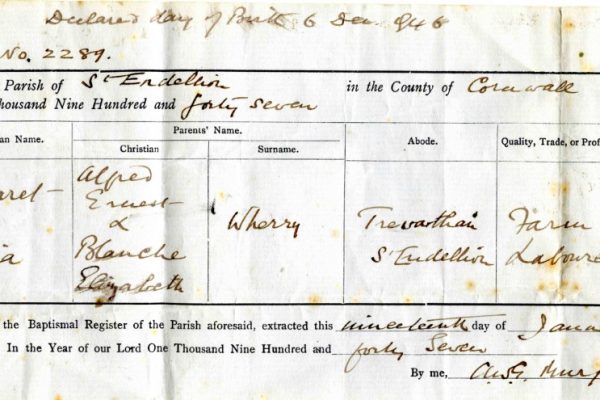 Declared day of Birth 6 Dec 946
No. 2289.
Parish of St Endellion in the County of Cornwall
housand Nine Hundred and forty seven
an Name. Parents' Name. Abode. Quality, Trade, or Prof
Christian Surname.
aret Alfred Ernest & Blanche Elizabeth Wherry Trevarthian St Endellion Farm Laboure
ia
the Baptismal Register of the Parish aforesaid, extracted this nineteenth day of Janu
In the Year of our Lord One Thousand Nine Hundred and forty Seven
By me,